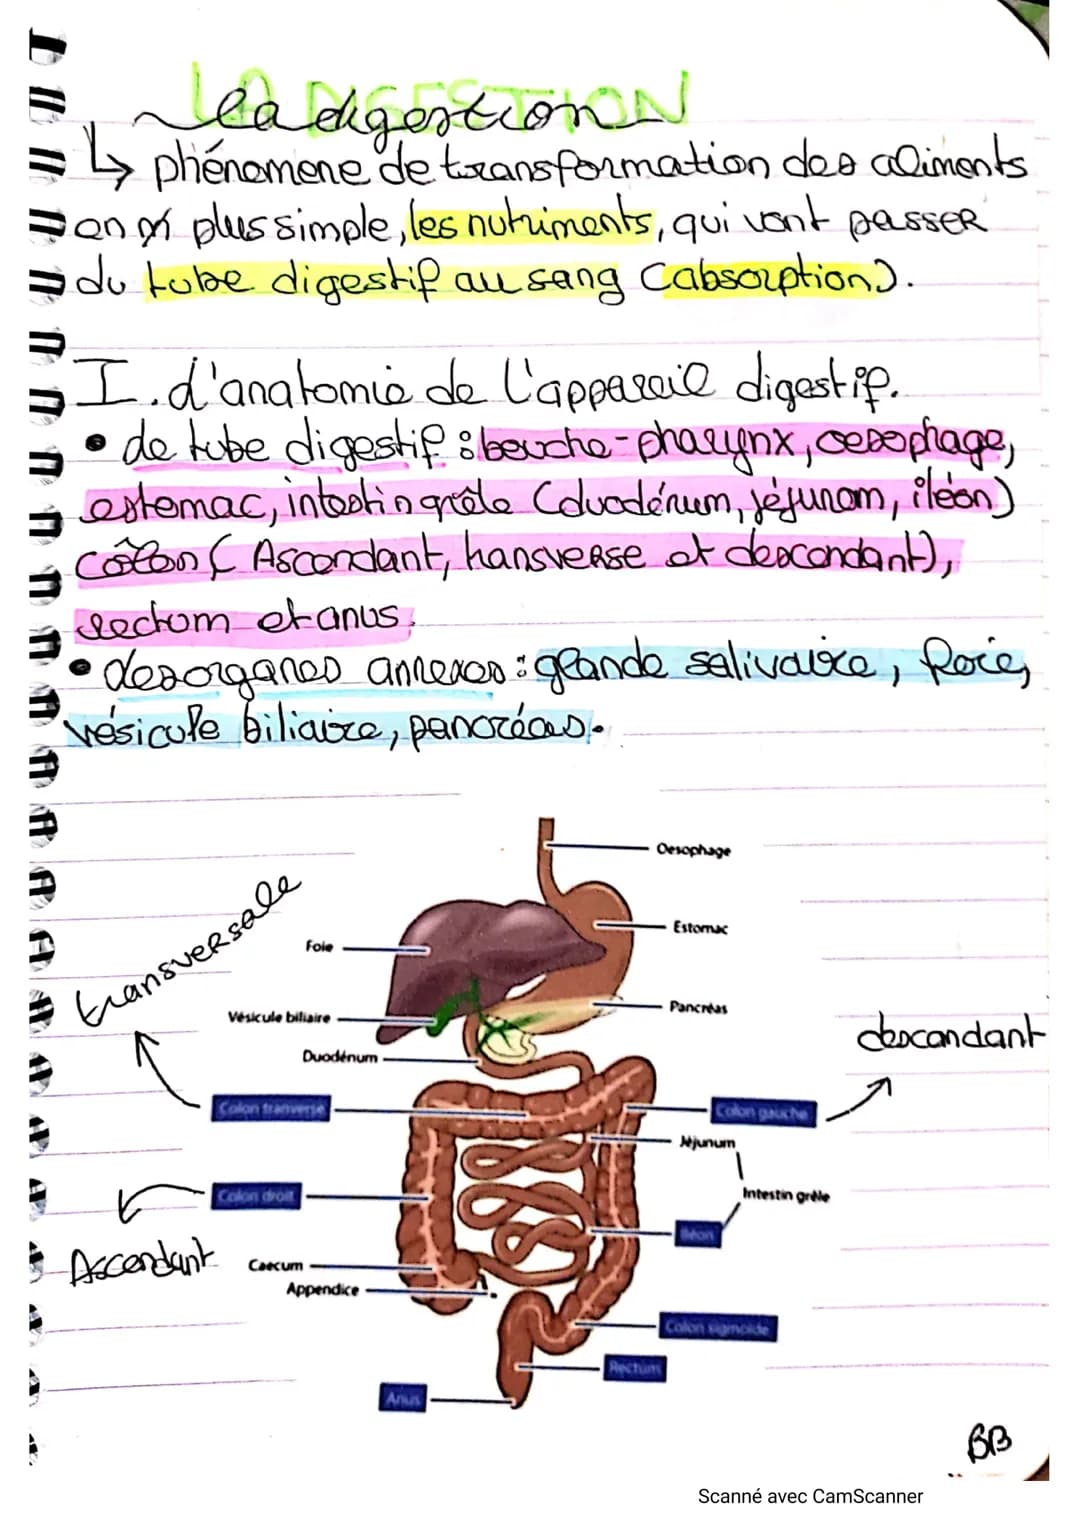 LA DIGESTION
La digestion
↳ phénomene de transformation des aliments
en plus simple, les nutriments, qui vont passer
du tube digestif au sang (absorption).
I. L'anatomie de l'appareil digestif.
• Le tube digestif : bouche-pharynx, oesophage,
estomac, intestin grêle (duodénum, jéjunom, iléon)
côlon (Ascendant, transverse et descendant),
rectum et anus.
• des organes annexes : glande salivaire, foie,
vésicule biliaire, pancréas.
Oesophage
transversale
Estomac
Foie
Pancréas
Vésicule biliaire
descendant
Duodénum
Colon tranverse
Colon gauche
Jéjunum
Colon droit
Intestin grêle
Iléon
Ascendant
Caecum
Appendice
Colon sigmoïde
Rectum
Anus
BB
Scanné avec CamScanner